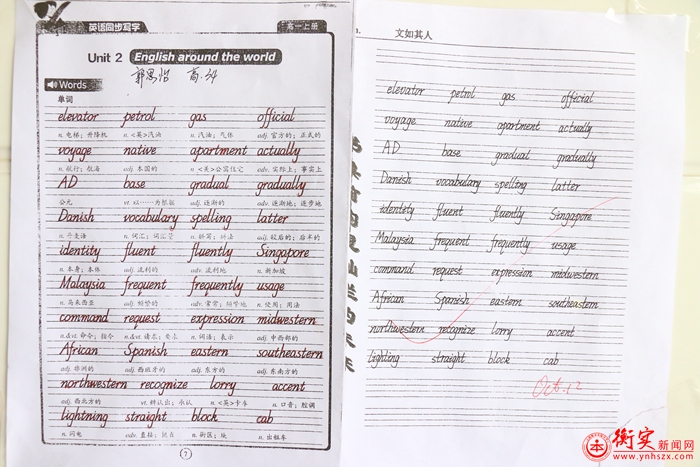 英语同步写字 高一上册
Unit 2 English around the world
高.34
Words
单词
elevator petrol gas official
n. 电梯；升降机 n. <英>汽油 n. 汽油；气体 adj. 官方的；正式的
voyage native apartment actually
n. 航行；航海 adj. 本国的 n. <美>公寓住宅 adv. 实际上；事实上
AD base gradual gradually
公元 vt. 以……为根据 adj. 逐渐的 adv. 逐渐地；逐步地
Danish vocabulary spelling latter
n. 丹麦语 n. 词汇；词汇量 n. 拼写；拼法 adj. 较后的；后半的
identity fluent fluently Singapore
n. 本身；本体 adj. 流利的 adv. 流利地 n. 新加坡
Malaysia frequent frequently usage
n. 马来西亚 adj. 频繁的 adv. 常常；频繁地 n. 使用；用法
command request expression midwestern
n.&vt. 命令；指令 n.&vt. 请求；要求 n. 词语；表示 adj. 中西部的
African Spanish eastern southeastern
adj. 非洲的 adj. 西班牙的 adj. 东方的 adj. 东南方的
northwestern recognize lorry accent
adj. 西北方的 vt. 辨认出；承认 n. <英>卡车 n. 口音；腔调
lightning straight block cab
n. 闪电 adv. 直接；挺直 n. 街区；块 n. 出租车
7
1. 文如其人
elevator petrol gas official
voyage native apartment actually
AD base gradual gradually
Danish vocabulary spelling latter
identity fluent fluently Singapore
Malaysia frequent frequently usage
command request expression midwestern
African Spanish eastern southeastern
northwestern recognize lorry accent
lighting straight block cab
Oct. 12
衡实新闻网
www.ynhszx.com